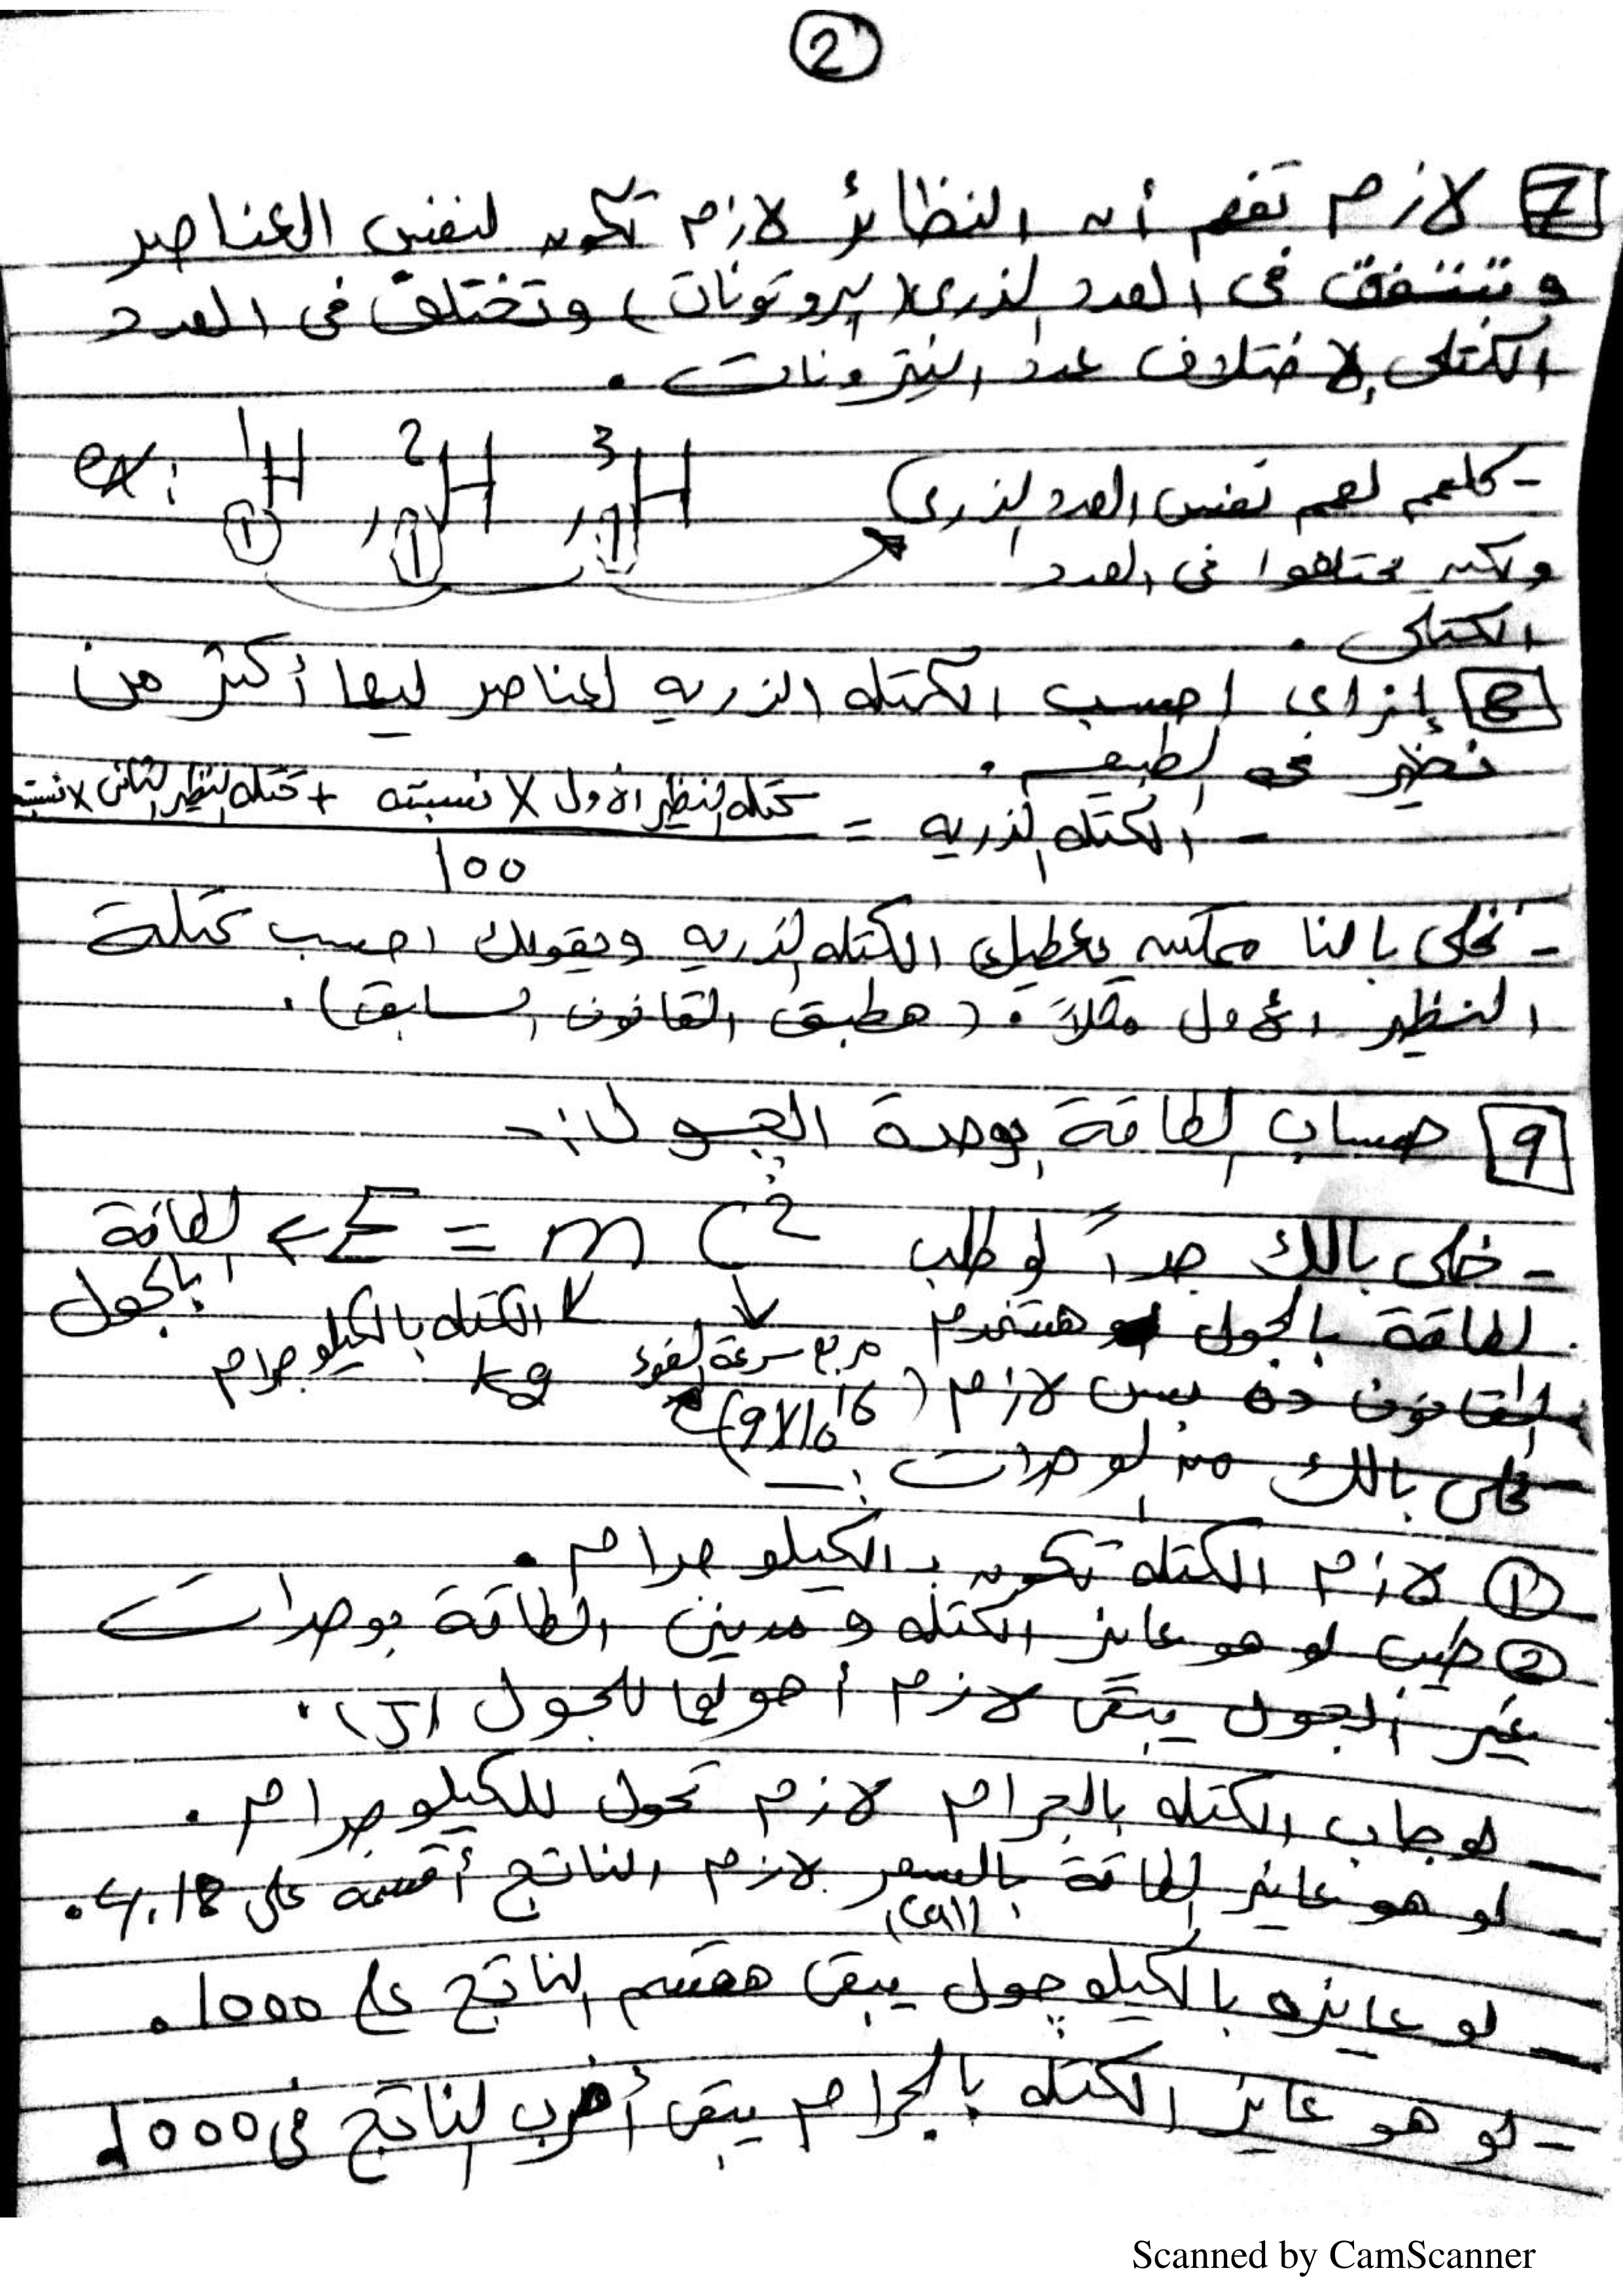 2
7 لازم تفهم أن النظائر لازم تكون لنفس العناصر
وتتفق فى العدد الذرى (بروتونات) وتختلف فى العدد
الكتلى لإختلاف عدد النيترونات .
ex: ¹₁H , ²₁H , ³₁H
- كلهم لهم نفس العدد الذرى
ولكن يختلفوا فى العدد
الكتلى .
8 إزاى احسب الكتله الذريه لعناصر ليها أكثر من
نظير فى الطبيعه .
- الكتله الذريه = كتله النظير الأول X نسبته + كتله النظير الثانى X نسبته
100
- نخلى بالنا ممكن يعطيك الكتله الذريه ويقولك احسب كتلة
النظير الأول مثلاً . (هطبق القانون السابق) .
9 حساب الطاقة بوحدة الچول :-
- خلى بالك جداً لو طلب
E = m c²
الطاقة بالجول
الطاقة بالجول هستخدم
مربع سرعة الضوء
(9X10¹⁶)
الكتله بالكيلو جرام
kg
القانون ده بس لازم
خلى بالك من الوحدات :-
① لازم الكتلة تكون بالكيلو جرام .
② طيب لو هو عايز الكتله ومدينى الطاقة بوحدات
غير الجول يبقى لازم أحولها للجول (J) .
- لو جاب الكتله بالجرام لازم تحول للكيلو جرام .
- لو هو عايز الطاقة بالسعر لازم الناتج أقسمه على 4.18 .
(cal)
- لو عايزه بالكيلو چول يبقى هقسم الناتج على 1000 .
- لو هو عايز الكتله بالجرام يبقى أضرب الناتج فى 1000
Scanned by CamScanner